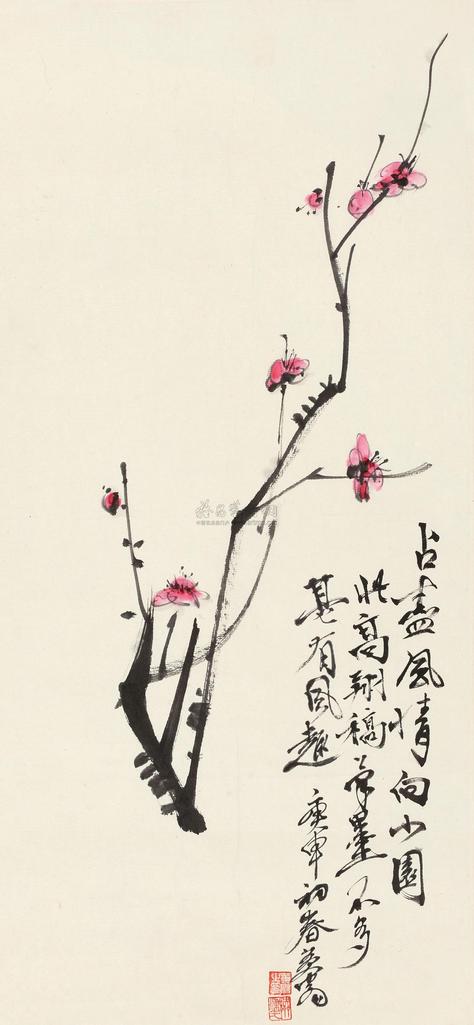 占盡风情向小園
此高翔稿筆墨不多
甚有风趣
庚申初春